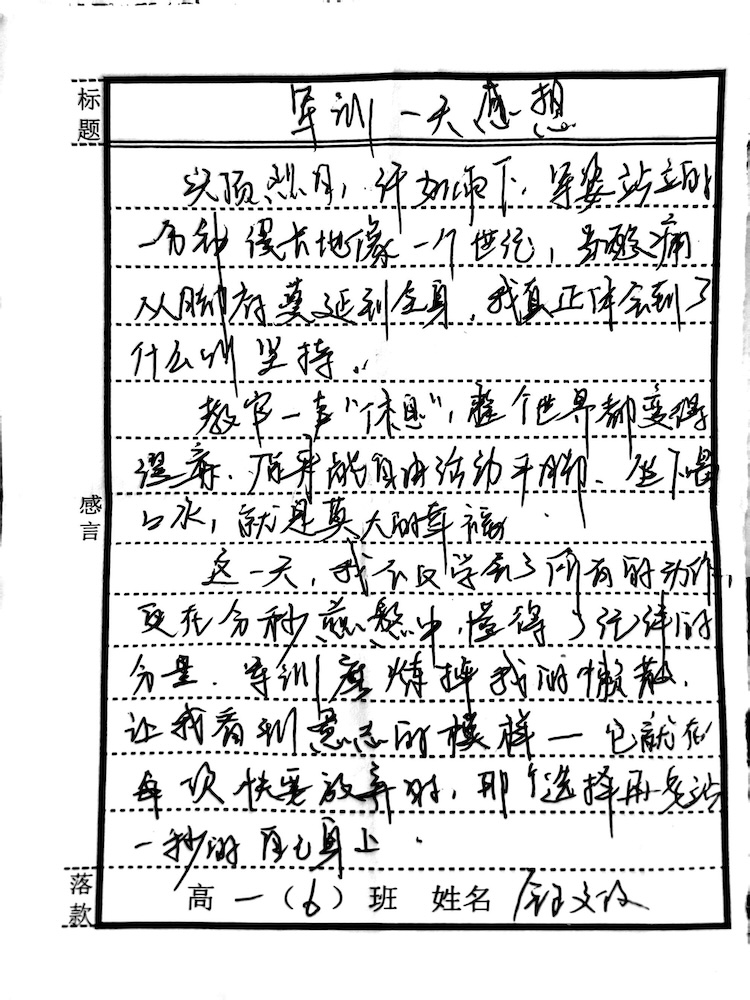 标题
军训一天感想
头顶烈日，汗如雨下，军姿站立的
一分钟漫长地像一个世纪，当酸痛
从脚底蔓延到全身，我真正体会到了
什么叫坚持。
教官一声“休息”，整个世界都变得
原来能自由活动手脚、坐下喝
口水，就是莫大的幸福.
感言
这一天，我不仅学会了所有的动作，
更在分秒煎熬中，懂得了纪律的
分量.军训磨炼掉我的懒散.
让我看到意志的模样一它就在
每次快要放弃时，那个选择再多站
一秒的自己身上.
落款
高一（6）班 姓名